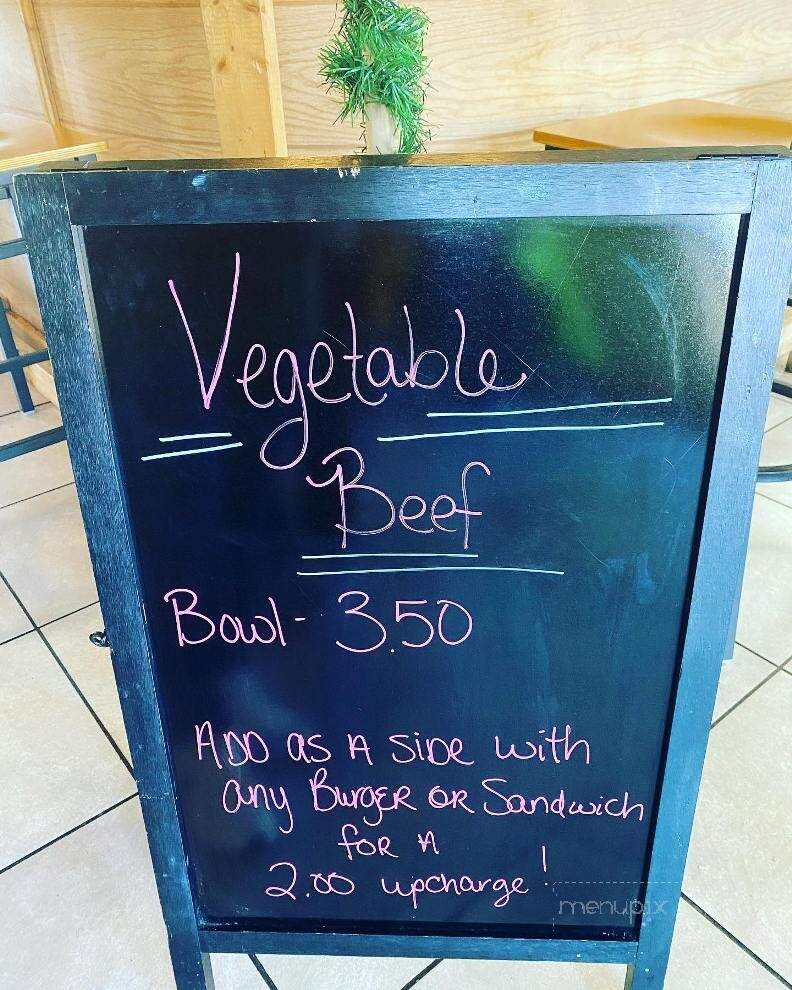 Vegetable
Beef
Bowl - 3.50
ADD as A SiDe with
any BurgeR oR Sandwich
foR A
2.00 upcharge!
menupix